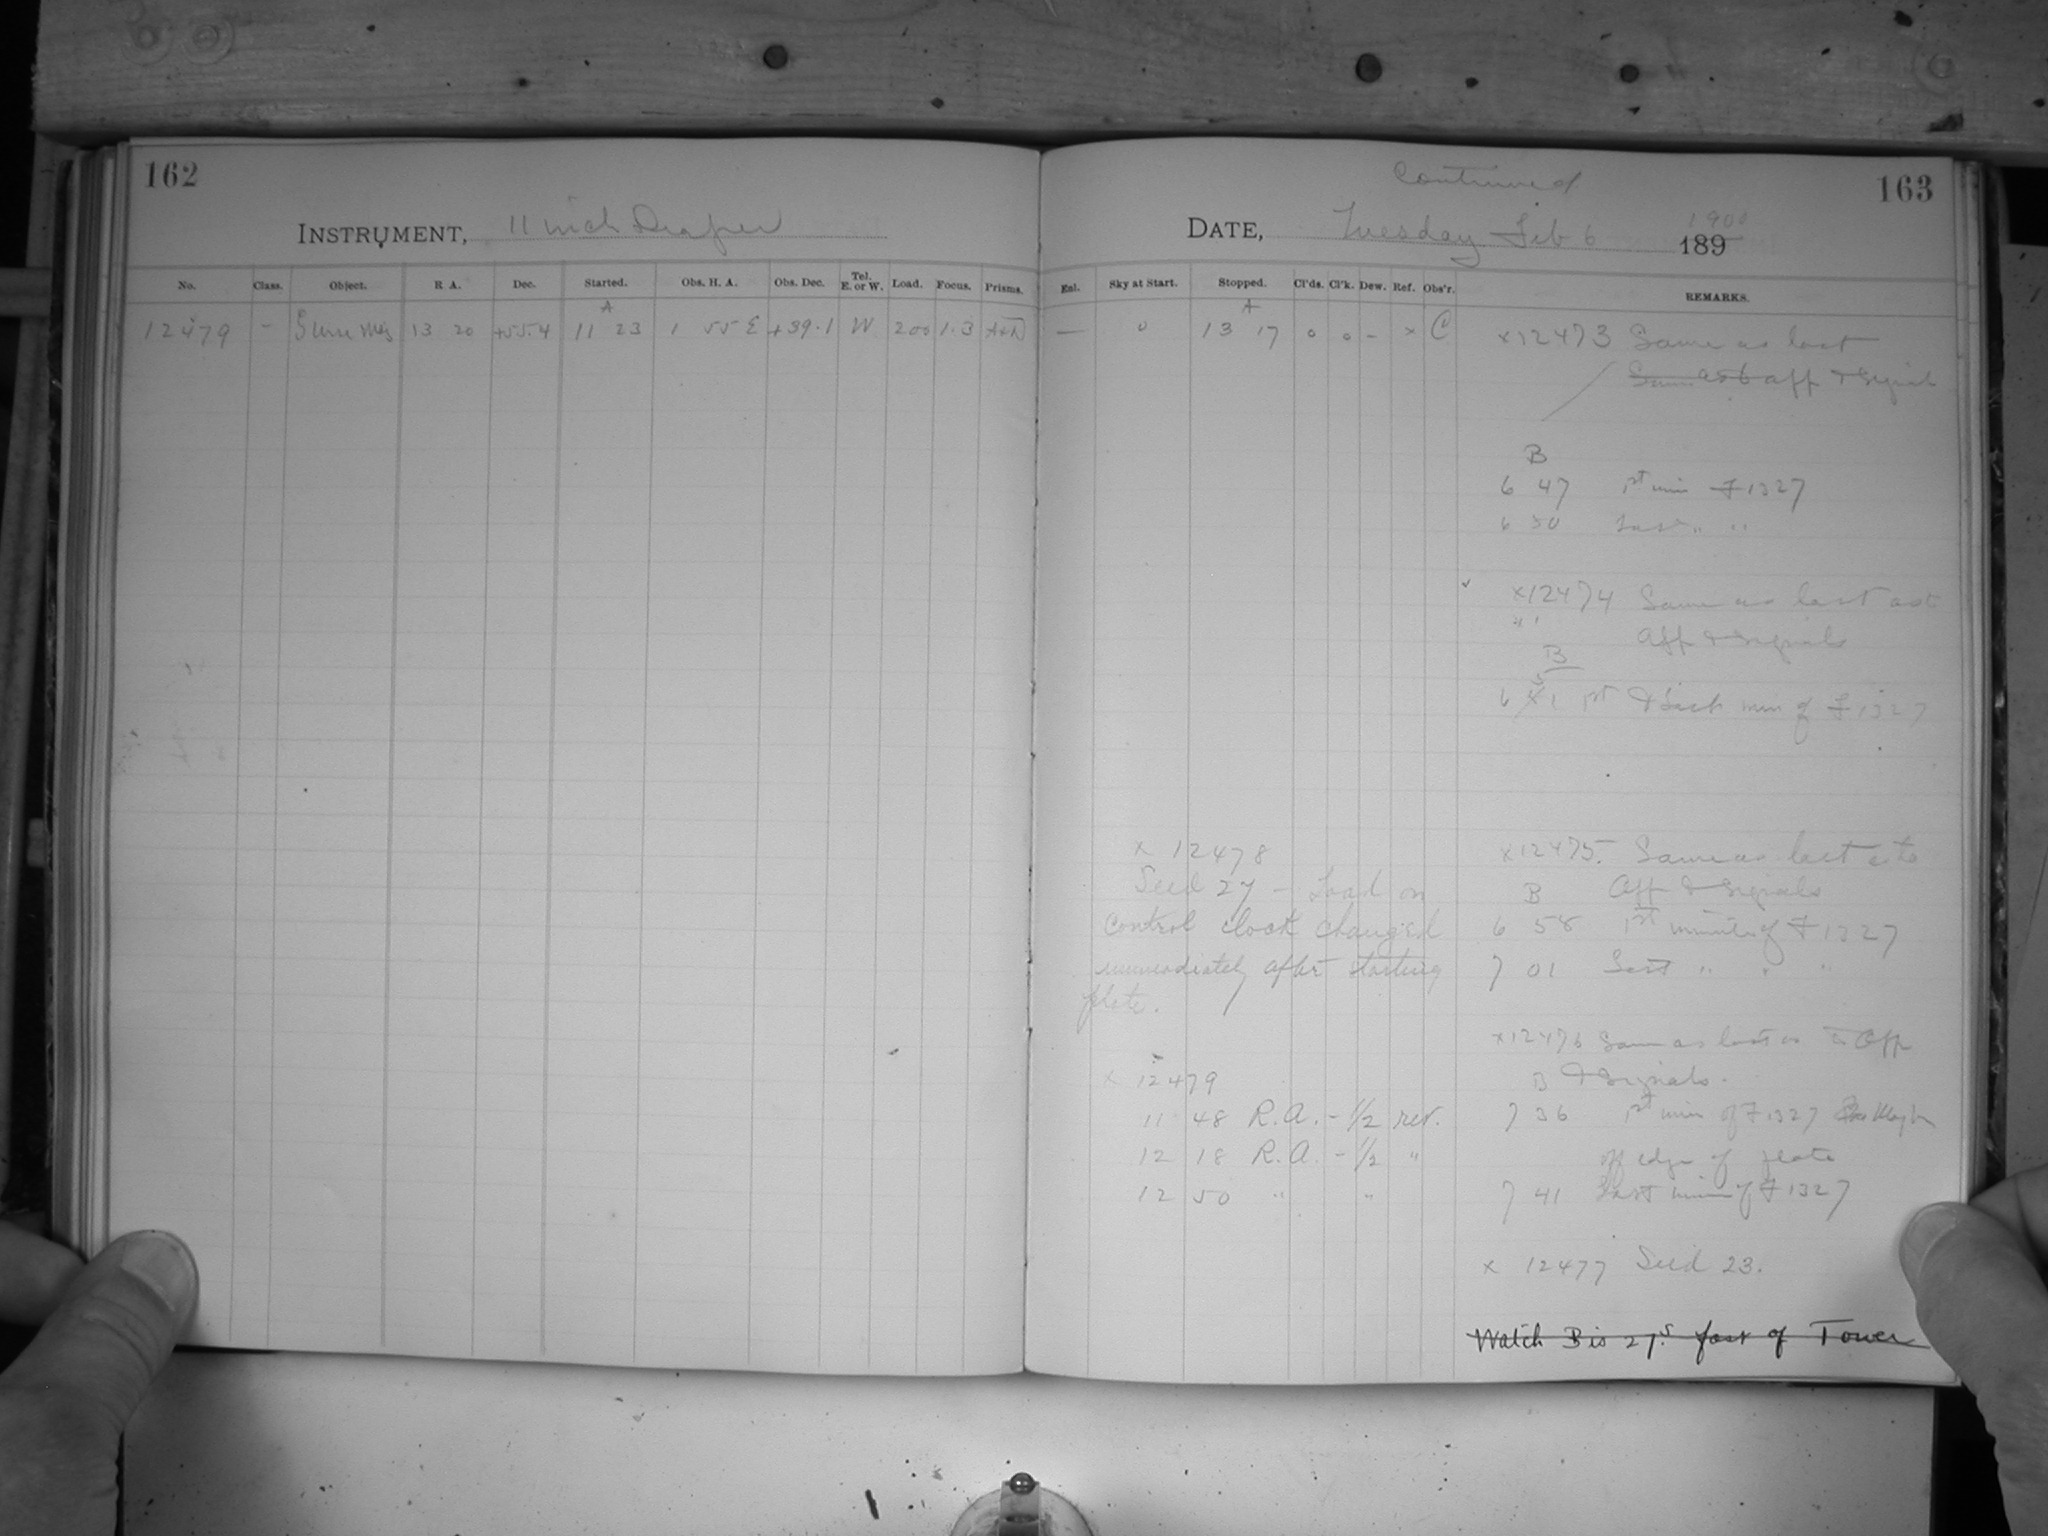 162
INSTRUMENT, 11 inch Draper
No. Class. Object. R A. Dec. Started. Obs. H. A. Obs. Dec. Tel. E. or W. Load. Focus. Prisms.
A
12479 - ξ Ursae Maj 13 20 +55.4 11 23 1 55 E +39.1 W 200 1.3
Continued
163
DATE, Tuesday Feb 6 1900
189
Enl. Sky at Start. Stopped. Cl'ds. Cl'k. Dew. Ref. Obs'r. REMARKS.
A
— 0 13 17 0 0 - × C
×12473 Same as last
Same as to app & Signals
B
6 47 1st min F 1327
6 50 Last " "
×12474 Same as last as to
App & Signals
B
5
6 41 1st & last min of F 1327
×12475. Same as last as to
B App & Signals
6 58 1st minute of F 1327
7 01 Last " " "
×12476 Same as last as to App
B & Signals.
7 36 1st min of F 1327
off edge of plate
7 41 Last min of F 1327
× 12477 Seed 23.
Watch B is 27.s fast of Tower
× 12478
Seed 27 - Load on
control clock changed
immediately after starting
plate.
× 12479
11 48 R.A. - 1/2 rev.
12 18 R.A. - 1/2 "
12 50 " "